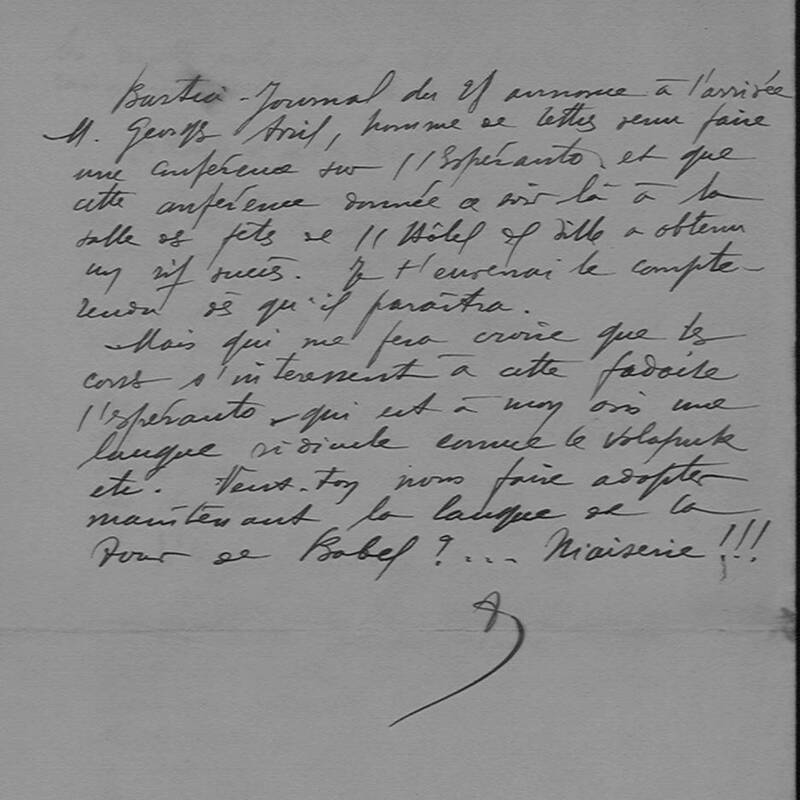 Bastia-Journal du 25 annonce à l'arrivée
M. Georges Avril, homme de lettres venu faire
une conférence sur l'Espéranto, et que
cette conférence donnée ce soir là à la
salle des fêtes de l'Hôtel de Ville a obtenu
un vif succès. Je t'enverrai le compte-
rendu dès qu'il paraîtra.
Mais qui me fera croire que les
corses s'interessent à cette fadaise
l'espéranto - qui est à mon avis une
langue ridicule comme le Volapuk
etc. Veut-on nous faire adopter
maintenant la langue de la
Tour de Babel ? ... Niaiserie !!!